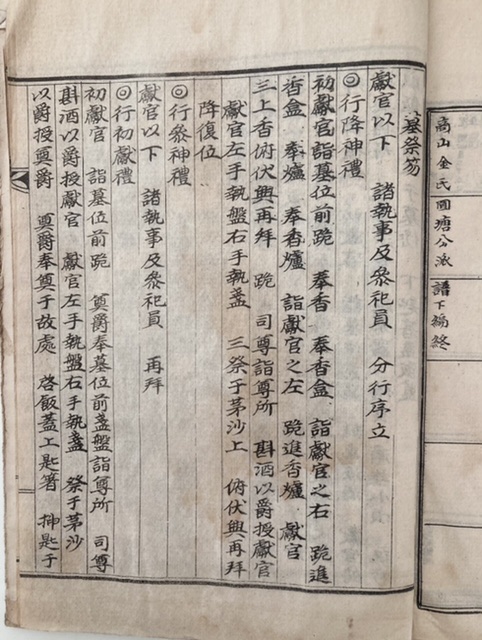 高山金氏回瀯公派 譜下編終
墓祭笏
獻官以下 諸執事及叅祀員 分行序立
◎行降神禮
初獻官詣墓位前跪 奉香 奉香盒 詣獻官之右 跪進
香盒 奉爐 奉香爐 詣獻官之左 跪進香爐 獻官
三上香俯伏興再拜 跪 司尊詣尊所 斟酒以爵授獻官
獻官左手執盤右手執盞 三祭于茅沙上 俯伏興再拜
降復位
◎行叅神禮
獻官以下 諸執事及叅祀員 再拜
◎行初獻禮
初獻官 詣墓位前跪 奠爵奉墓位前盞盤詣尊所 司尊
斟酒以爵授獻官 獻官左手執盤右手執盞 祭于茅沙
以爵授奠爵 奠爵奉奠于故處 啓飯蓋上匙箸 揷匙于